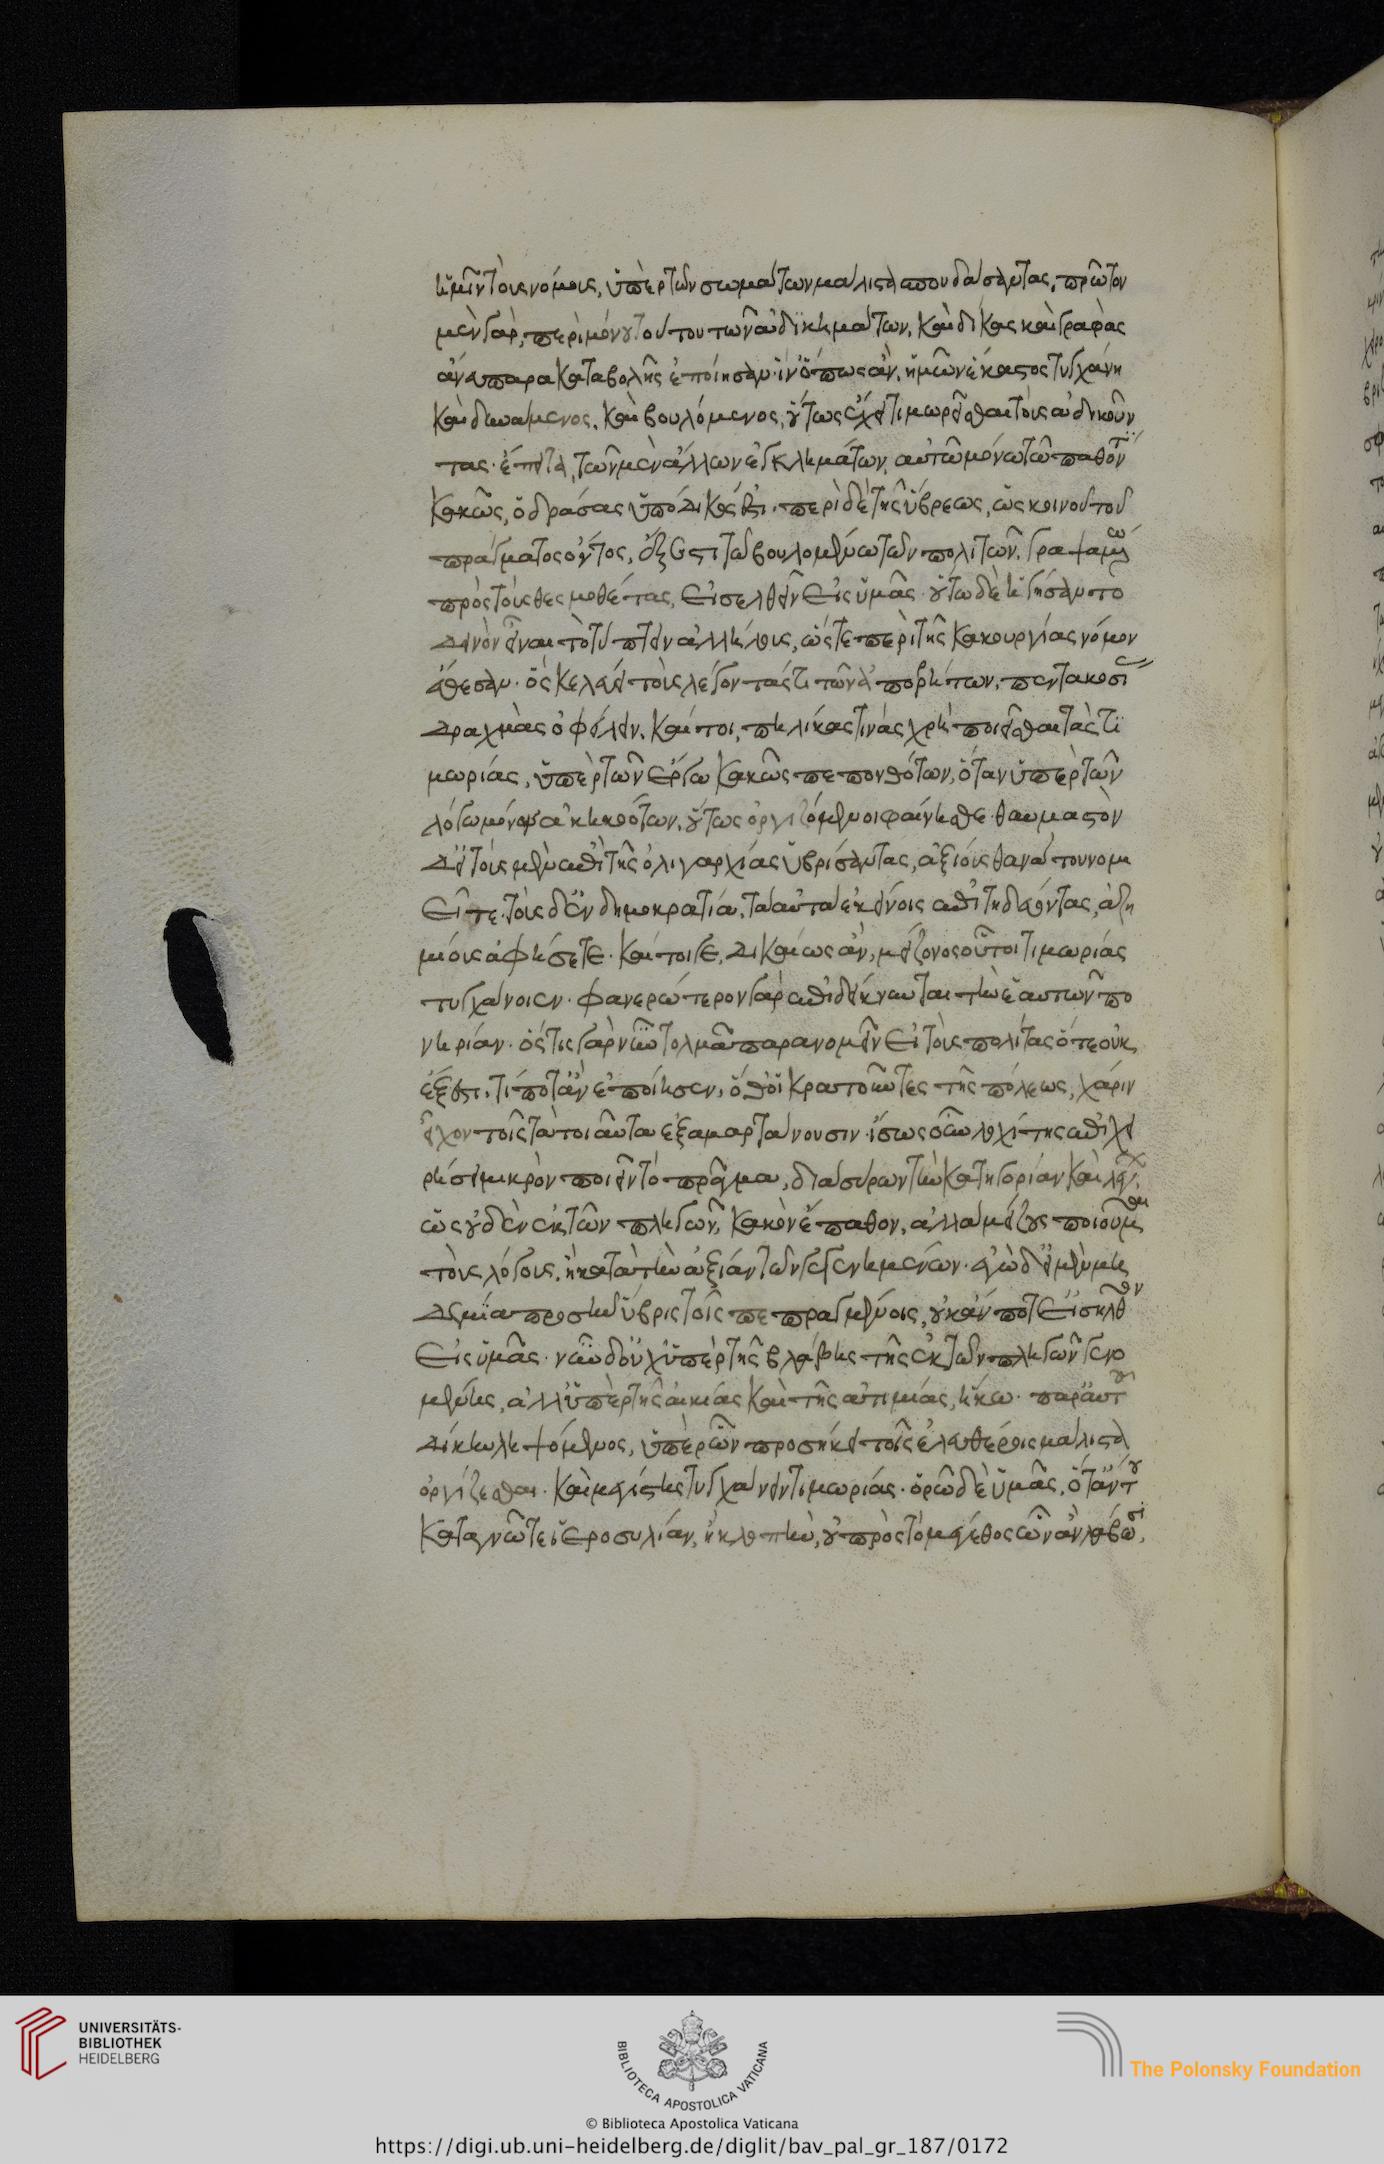 ἡμῖν τοὺς νόμους, ὑπὲρ τῶν σωμάτων μάλιστα σπουδάσαντας, πρῶτον
μὲν γὰρ, περὶ μόνου τούτου τῶν ἀδικημάτων, καὶ δίκας καὶ γραφὰς
ἄνευ παρακαταβολῆς ἐποίησαν· ἵν' ὅπως ἂν, ἡμῶν ἕκαστος τυγχάνη
καὶ δυνάμενος, καὶ βουλόμενος, οὕτως ἔχει τιμωρεῖσθαι τοὺς ἀδικοῦν
τας· ἔπειτα, τῶν μὲν ἄλλων ἐγκλημάτων, αὐτῶ μόνω τῶ παθόντι
κακῶς, ὁ δράσας ὑπόδικός ἐστι· περὶ δὲ τῆς ὕβρεως, ὡς κοινοῦ τοῦ
πράγματος ὄντος, ἔξεστι τῶ βουλομένω τῶν πολιτῶν, γραψαμένω
πρὸς τοὺς θεσμοθέτας, εἰσελθεῖν εἰς ὑμᾶς· οὕτω δὲ ἡγήσαντο
δεινὸν εἶναι τὸ τύπτειν ἀλλήλους, ὥστε περὶ τῆς κακουργίας νόμον
ἔθεσαν· ὃς κελεύει τοὺς λέγοντάς τι τῶν ἀπορρήτων, πεντακοσίας
δραχμὰς ὀφείλειν. καί τοι, πηλίκας τινὰς χρὴ ποιεῖσθαι τὰς τι
μωρίας, ὑπὲρ τῶν ἔργω κακῶς πεπονθότων, ὅταν ὑπὲρ τῶν
λόγω μόνον ἀκηκοότων, οὕτως ὀργιζόμενοι φαίνησθε· θαυμαστὸν
δ' εἰ τοὺς μὲν ἐπὶ τῆς ὀλιγαρχίας ὑβρίσαντας, ἀξίους θανάτου νομι
εῖτε· τοὺς δ' ἐν δημοκρατία, ταὐτὰ ἐκείνοις ἐπιτηδεύοντας, ἀζη
μίους ἀφήσετε· καί τοι γε, δικαίως ἂν, μείζονος οὗτοι τιμωρίας
τυγχάνοιεν· φανερώτερον γὰρ ἐπιδείκνυνται τὴν ἑαυτῶν πο
νηρίαν· ὅστις γὰρ νῦν τολμᾶ παρανομεῖν εἰ τοὺς πολίτας ὅτε οὐκ
ἔξεστι, τί ποτ' ἂν ἐποίησεν, ὅθ' οἱ κρατοῦντες τῆς πόλεως, χάριν
εἶχον τοῖς τὰ τοιαῦτα ἐξαμαρτάνουσιν· ἴσως οὖν λοχίτης ἐπιχει
ρήσει μικρὸν ποιεῖν τὸ πρᾶγμα, διασύρων τὴν κατηγορίαν καὶ λέγειν,
ὡς οὐδὲν ἐκ τῶν πληγῶν, κακὸν ἔπαθον, ἀλλὰ μείζους ποιοῦμαι
τοὺς λόγους, ἢ κατὰ τὴν ἀξίαν τῶν γεγενημένων· ἐγὼ δ' εἰ μὲν μη
δεμία προσῆν ὕβρις τοῖς πεπραγμένοις, οὐκ ἄν ποτ' εἰσῆλθον
εἰς ὑμᾶς· νῦν δ' οὐχ ὑπὲρ τῆς βλάβης τῆς ἐκ τῶν πληγῶν γενο
μένης, ἀλλ' ὑπὲρ τῆς αἰκίας καὶ τῆς ἀτιμίας, ἥκω· παρ' αὐτοῦ
δίκην ληψόμενος, ὑπὲρ ὧν προσήκει τοῖς ἐλευθέροις μάλιστα
ὀργίζεσθαι· καὶ μεγίστης τυγχάνειν τιμωρίας· ὁρῶ δὲ ὑμᾶς, ὅταν του
καταγνῶτε ἱεροσυλίαν, ἢ κλοπὴν, οὐ πρὸς τὸ μέγεθος ὧν ἂν λάβωσι,
UNIVERSITÄTS-
BIBLIOTHEK
HEIDELBERG
BIBLIOTECA APOSTOLICA VATICANA
The Polonsky Foundation
© Biblioteca Apostolica Vaticana
https://digi.ub.uni-heidelberg.de/diglit/bav_pal_gr_187/0172